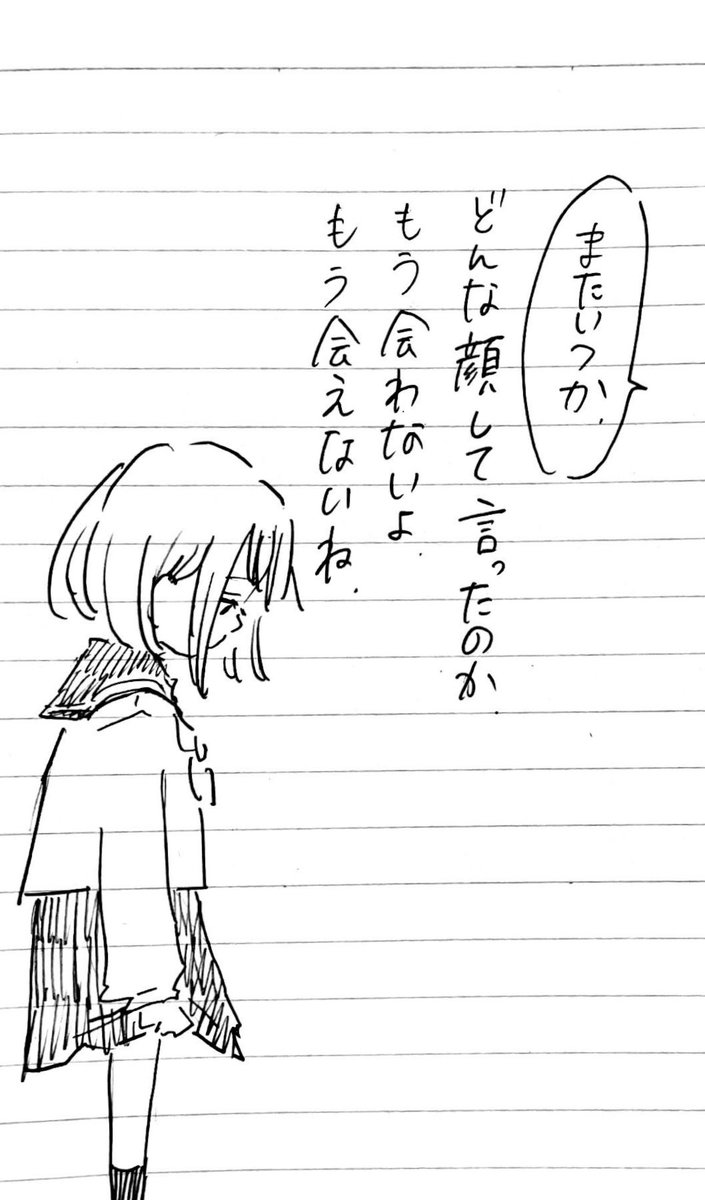 またいつか.
どんな顔して言ったのか.
もう会わないよ.
もう会えないね.